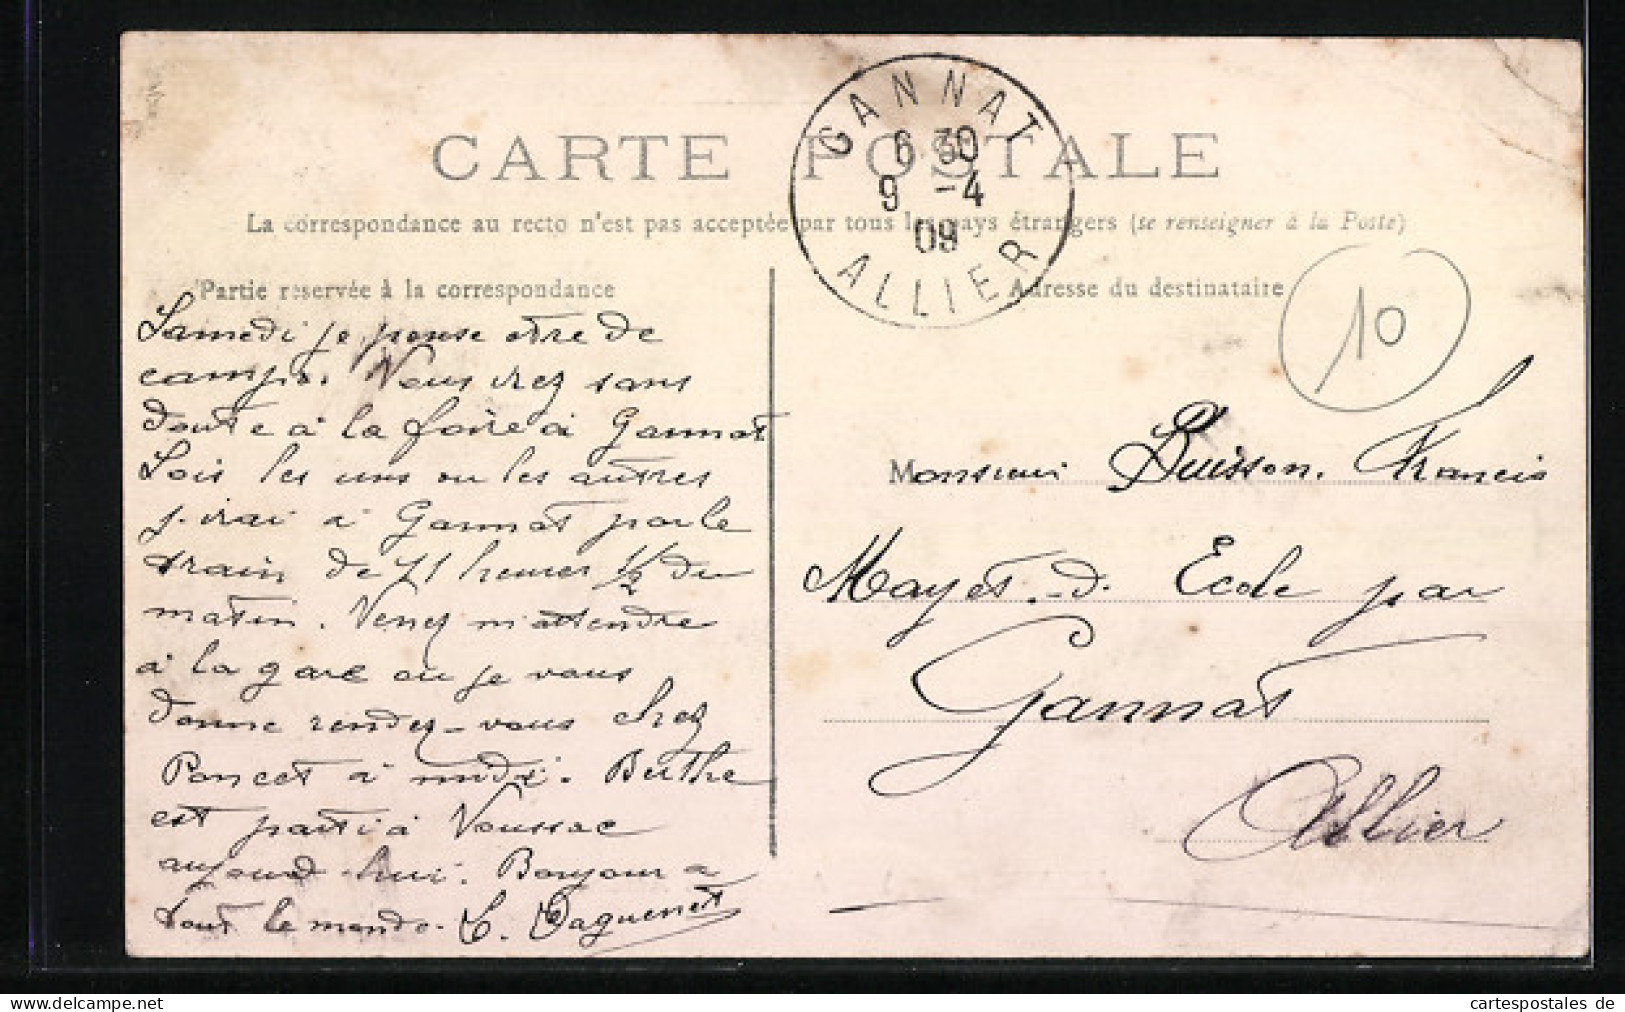 GANNAT
6 30
9 -4
09
ALLIER
CARTE POSTALE
La correspondance au recto n'est pas acceptée par tous les pays étrangers (se renseigner à la Poste)
Partie réservée à la correspondance
Samedi je pense être de
campo. Vous irez sans
doute à la foire à Gannat
Sois les uns ou les autres
j'irai à Gannat par le
train de 11 heures 1/2 du
matin. Venez m'attendre
à la gare ou je vous
donne rendez-vous chez
Poncet à midi. Berthe
est parti à Voussac
aujourd'hui. Bonjour a
tout le monde. C. Daguenet
Adresse du destinataire
10
Monsieur Buisson. Francis
Mayet-d. Ecole par
Gannat
Allier
cartespostales de